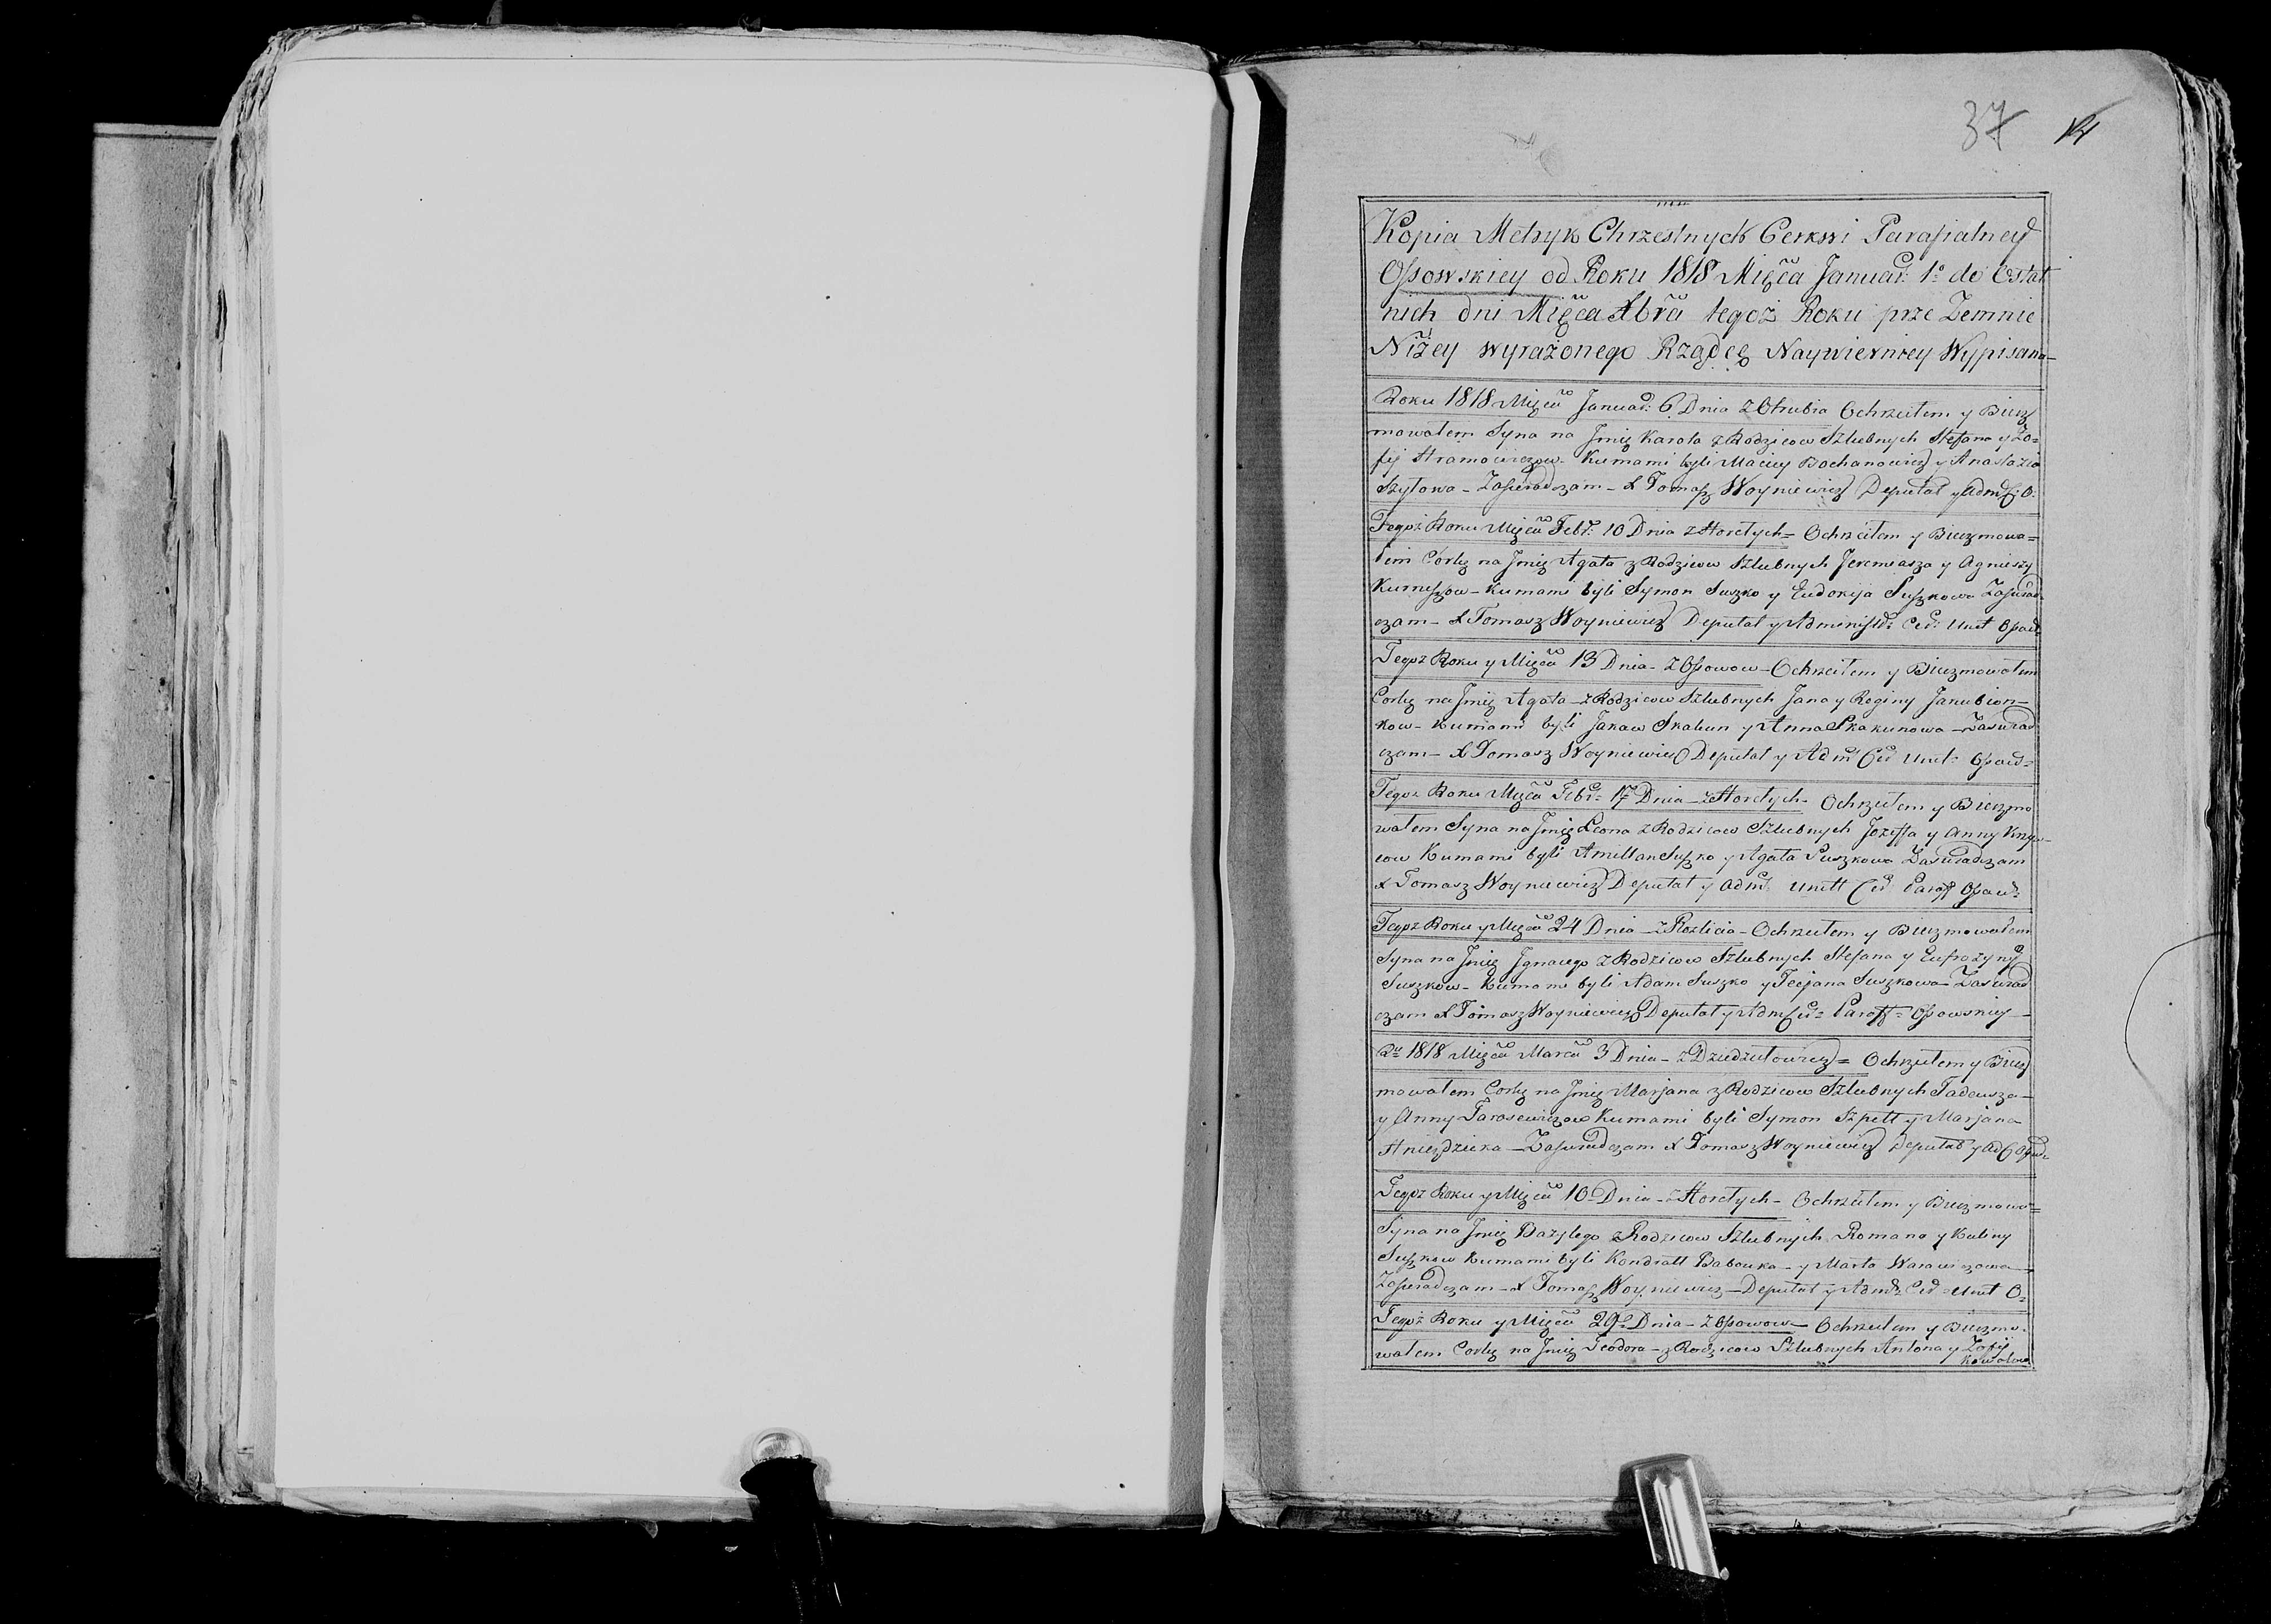 37
Kopia Metryk Chrzestnych Cerkwi Parafialney
Ossowskiey od Roku 1818 Mięca Januar: 1º do Ostat
nich dni Mięca Xbra tegoż Roku prze Zemnie
Niżey wyrażonego Rządcę Naywierniey Wypisana
Roku 1818 Mięca Januar: 6 Dnia z Ochrzciłem y Bierz
mowałem Syna na Jmię Karola z Rodzicow Szlubnych Stefana y Zo=
fij Kumami byli Maciey Bochanowicz y Anastazia
Szytowa - Zaswiadczam - X Tomasz Woyniewicz Deputat y Adm:
Tegoż Roku Mięca Febr: 10 Dnia z Horctych= Ochrzciłem y Bierzmowa=
łem Corkę na Jmię Agata z Rodzicow Szlubnych Jeremiasza y Agnieszy
Kumami byli Symon Suszko y Eudokija Suszkowa Zaswiad
czam - X Tomasz Woyniewicz Deputat y Administr:
Tegoż Roku y Mięca 13 Dnia - z Ossowow - Ochrzciłem y Bierzmowałem
Corkę na Jmię Agata - z Rodzicow Szlubnych Jana y Reginy Jakubion-
kow - Kumami byli Jakow Skakun y Anna Skakunowa - Zaswiad
czam - X Tomasz Woyniewicz Deputat y Adm
Tegoż Roku Mięca Febr: 17 Dnia - z Horctych - Ochrzciłem y Bierzmo
wałem Syna na Jmię Leona z Rodzicow Szlubnych Jozeffa y Anny
Kumami byli Suszko y Agata Suszkowa Zaswiadczam
X Tomasz Woyniewicz Deputat y Adm: Paraff
Tegoż Roku y Mięca 24 Dnia - Ochrzciłem y Bierzmowałem
Syna na Jmię Jgnacego z Rodzicow Szlubnych Stefana y Eufrozyny
Suszkow - Kumami byli Adam Suszko y Tecjana Suszkowa - Zaswiad
czam X Tomasz Woyniewicz Deputat y Adm Paraff= Ossowskiey
1818 Mięca Marca 3 Dnia - Ochrzciłem y Bierz
mowałem Corkę na Jmię Marjana z Rodzicow Szlubnych Tadeusza
y Anny Tarasewiczow Kumami byli Symon Szpett y Marjana
Zaswiadczam X Tomasz Woyniewicz Deputat
Tegoż Roku y Mięca 10 Dnia - z Horctych - Ochrzciłem y Bierzmowa=
Syna na Jmię Bazylego z Rodzicow Szlubnych Romana y Kuliny
Suszkow Kumami byli Kondratt Babouka - y Marta
Zaswiadczam - X Tomasz Woyniewicz - Deputat y Adm:
Tegoż Roku y Mięca 29 Dnia - z Ossowow - Ochrzciłem y Bierzmo-
wałem Corkę na Jmię Teodora - z Rodzicow Szlubnych Antona y Zofij